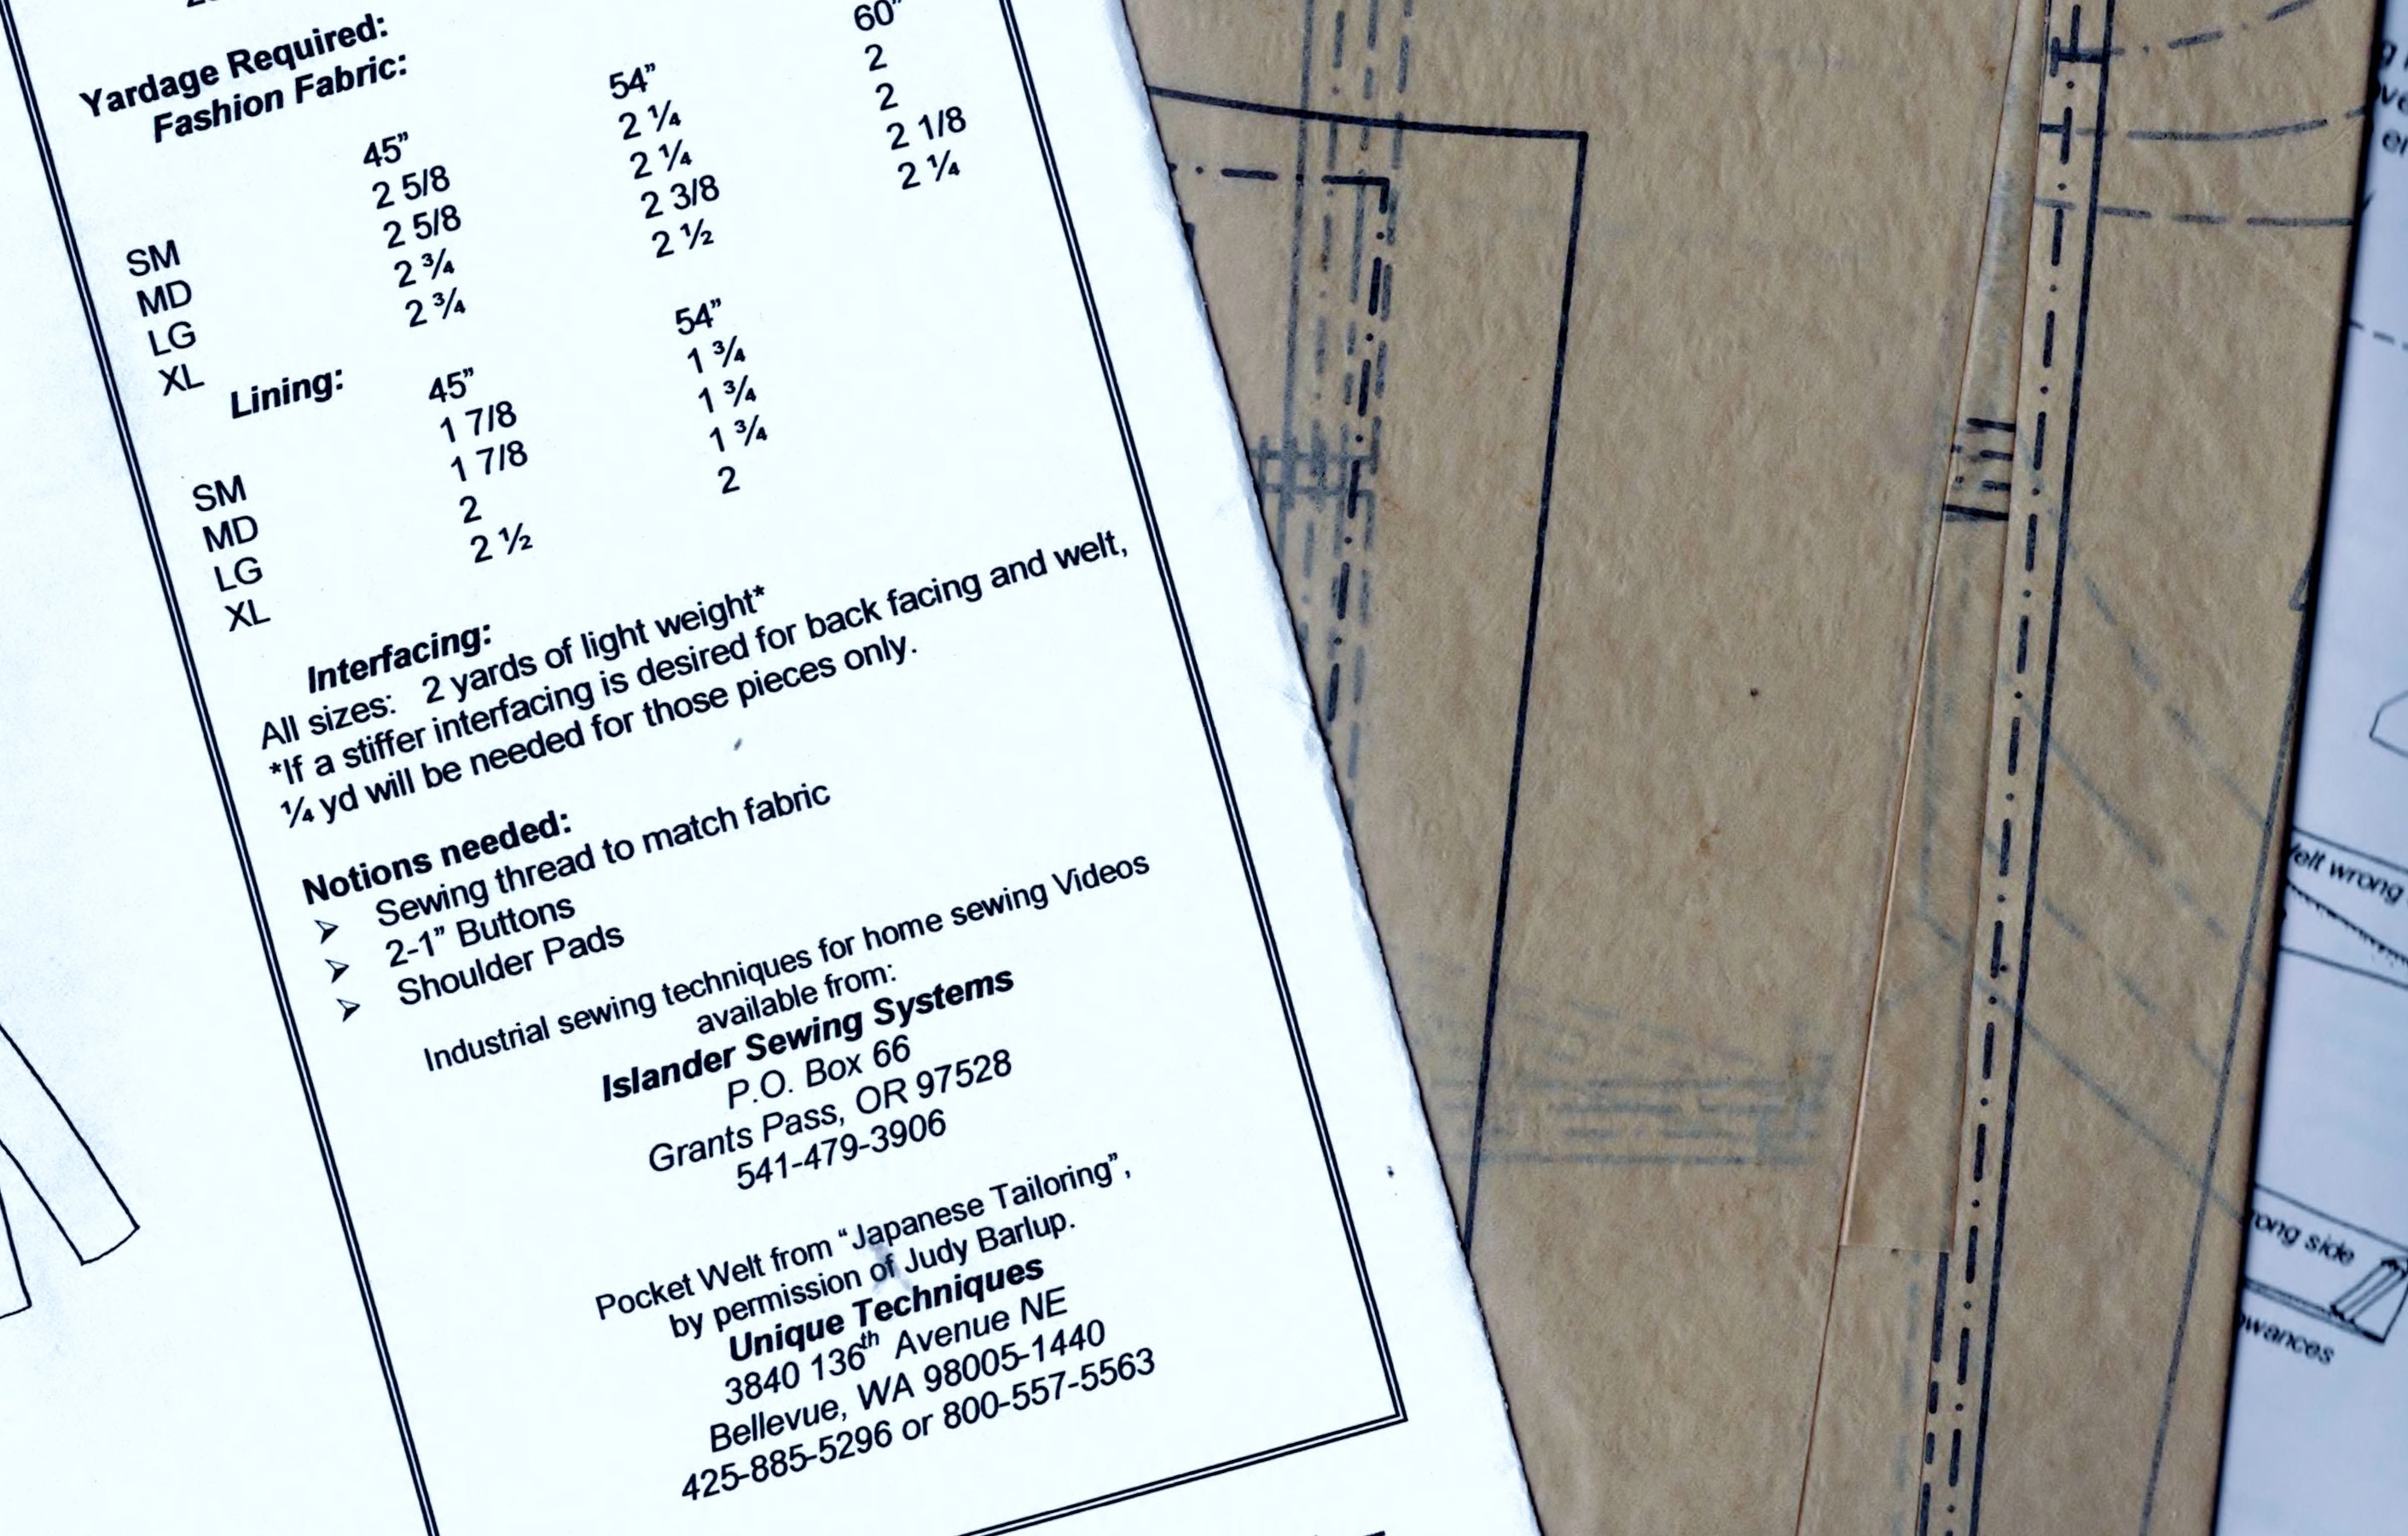 Yardage Required:
Fashion Fabric:
45” 54” 60”
SM 2 5/8 2 ¼ 2
MD 2 5/8 2 ¼ 2
LG 2 ¾ 2 3/8 2 1/8
XL 2 ¾ 2 ½ 2 ¼
Lining: 45” 54”
SM 1 7/8 1 ¾
MD 1 7/8 1 ¾
LG 2 1 ¾
XL 2 ½ 2
Interfacing:
All sizes: 2 yards of light weight*
*If a stiffer interfacing is desired for back facing and welt,
¼ yd will be needed for those pieces only.
Notions needed:
➢ Sewing thread to match fabric
➢ 2-1” Buttons
➢ Shoulder Pads
Industrial sewing techniques for home sewing Videos
available from:
Islander Sewing Systems
P.O. Box 66
Grants Pass, OR 97528
541-479-3906
Pocket Welt from “Japanese Tailoring”,
by permission of Judy Barlup.
Unique Techniques
3840 136th Avenue NE
Bellevue, WA 98005-1440
425-885-5296 or 800-557-5563
wrong
side